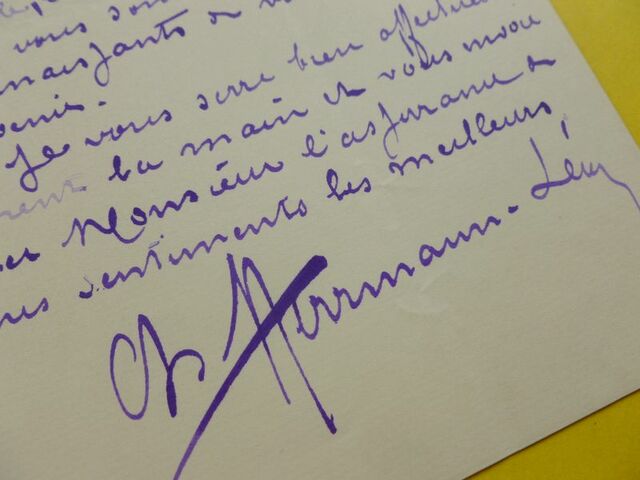 vous son
naissants de v
Je vous serre bien affectueu
ment la main et vous envoie
Monsieur l'assurance de
mes sentiments les meilleurs,
Ch Herrmann-Léon